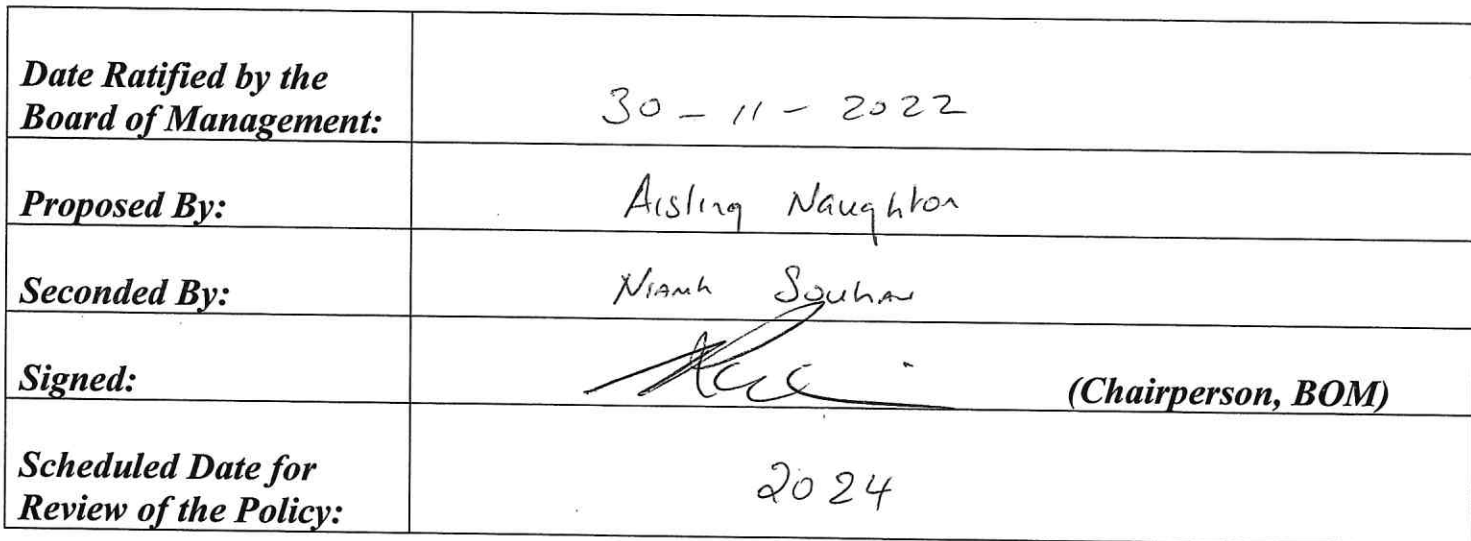 Date Ratified by the
Board of Management:
30 - 11 - 2022
Proposed By:
Aisling Naughton
Seconded By:
Niamh
Signed:
(Chairperson, BOM)
Scheduled Date for
Review of the Policy:
2024